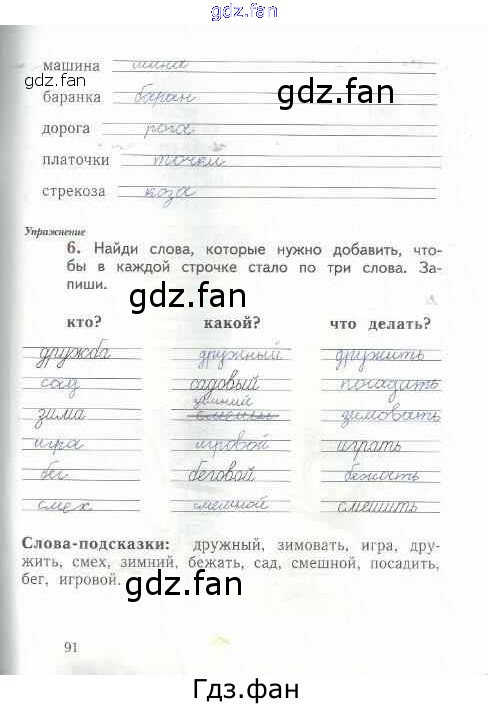 gdz.fan
машина шина
gdz.fan
баранка баран gdz.fan
дорога рога
платочки точки
стрекоза коза
Упражнение
6. Найди слова, которые нужно добавить, что-
бы в каждой строчке стало по три слова. За-
пиши.
gdz.fan
кто? какой? что делать?
дружба дружный дружить
сад садовый посадить
зимний
зима зимовать
игра игровой играть
бег беговой бежать
смех смешной смешить
Слова-подсказки: дружный, зимовать, игра, дру-
жить, смех, зимний, бежать, сад, смешной, посадить,
бег, игровой.
gdz.fan
gdz.fan
91
Гдз.фан